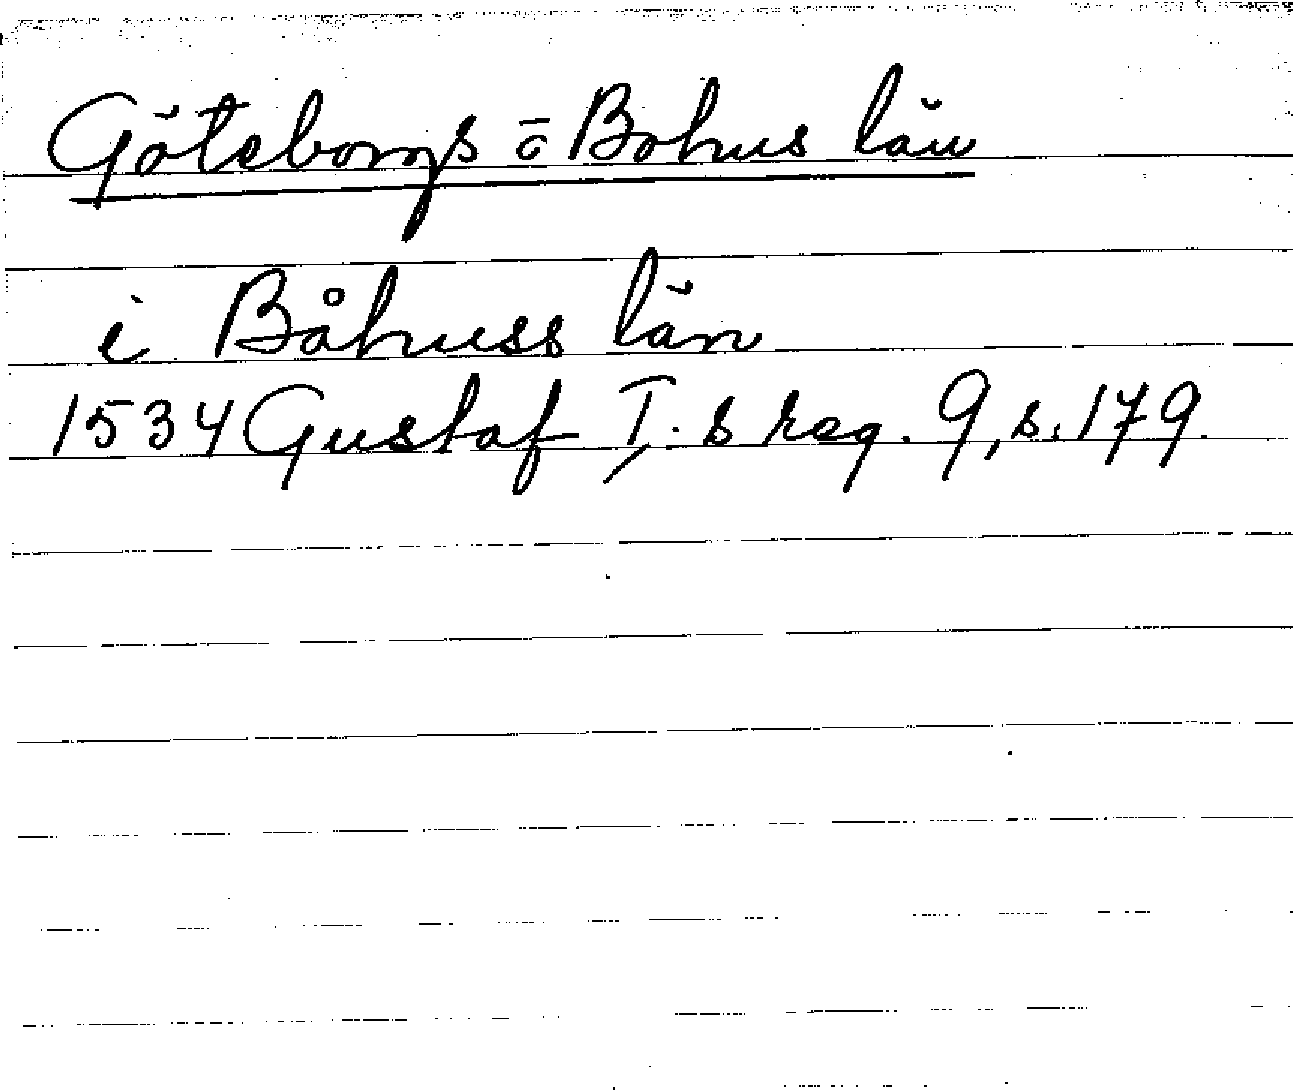 Göteborgs ō Bohus län
i Båhuss län
1534 Gustaf I:s reg. 9, s. 179.